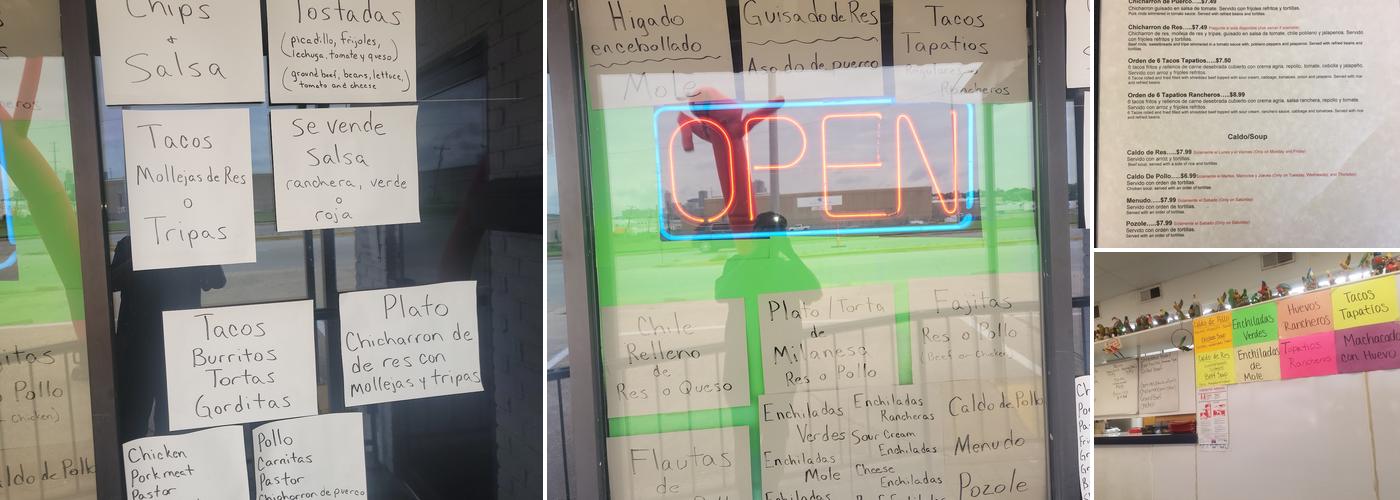 Chips
+
Salsa
Tostadas
(picadillo, frijoles,
lechuga, tomate y queso)
(ground beef, beans, lettuce,
tomato and cheese)
Tacos
Mollejas de Res
o
Tripas
Se vende
Salsa
ranchera, verde
o
roja
Tacos
Burritos
Tortas
Gorditas
Plato
Chicharron de
de res con
mollejas y tripas
Chicken
Pork meat
Pastor
Pollo
Carnitas
Pastor
Chicharron de puerco
Pollo
Caldo de Pollo
Higado
encebollado
Mole
Guisado de Res
Asado de puerco
Tacos
Tapatios
Regulares
Rancheros
OPEN
Chile
Relleno
de
Res o Queso
Plato / Torta
de
Milanesa
Res o Pollo
Fajitas
Res o Pollo
(Beef or Chicken)
Flautas
de
Enchiladas
Verdes
Enchiladas
Mole
Enchiladas
Enchiladas
Rancheras
Sour Cream
Enchiladas
Cheese
Enchiladas
Caldo de Pollo
Menudo
Pozole
Chicharron de Puerco.....$7.49
Chicharron guisado en salsa de tomate. Servido con frijoles refritos y tortillas.
Pork rinds simmered in tomato sauce. Served with refried beans and tortillas.
Chicharron de Res.....$7.49
Chicharron de res, molleja de res y tripas, guisado en salsa de tomate, chile poblano y jalapenos. Servido
con frijoles refritos y tortillas.
Beef rinds, sweetbreads and tripe simmered in a tomato sauce with, poblano peppers and jalapenos. Served with refried beans and
tortillas.
Orden de 6 Tacos Tapatios.....$7.50
6 tacos fritos y rellenos de carne desebrada cubierto con crema agria, repollo, tomate, cebolla y jalapeño.
Servido con arroz y frijoles.
6 Tacos rolled and fried filled with shredded beef topped with sour cream, cabbage, tomatoes, onion and jalapeno. Served with rice
and refried beans.
Orden de 6 Tapatios Rancheros.....$8.99
6 tacos fritos y rellenos de carne desebrada cubierto con crema agria, salsa ranchera, repollo y tomate.
Servido con arroz y frijoles.
6 Tacos rolled and fried filled with shredded beef topped with sour cream, ranchero sauce, cabbage and tomatoes. Served with rice
and refried beans.
Caldo/Soup
Caldo de Res.....$7.99 Solamente el Lunes y el Viernes (Only on Monday and Friday)
Servido con arroz y tortillas.
Beef soup, served with a side of rice and tortillas.
Caldo De Pollo.....$6.99 Solamente el Martes, Miercoles y Jueves (Only on Tuesday, Wednesday, and Thursday)
Servido con orden de tortillas.
Chicken soup, served with an order of tortillas.
Menudo.....$7.99 Solamente el Sabado (Only on Saturday)
Servido con orden de tortillas.
Served with an order of tortillas.
Pozole.....$7.99 Solamente el Sabado (Only on Saturday)
Servido con orden de tortillas.
Served with an order of tortillas.
Caldo de Pollo
Chicken Soup
Caldo de Res
Beef Soup
Enchiladas
Verdes
Huevos
Rancheros
Tacos
Tapatios
Enchiladas
de
Mole
Tapatios
Rancheros
Machacado
con Huevo